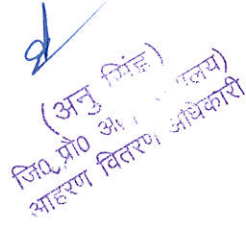 (अनु सिंह)
जि0 प्रो0 अ
आहरण वितरण अधिकारी